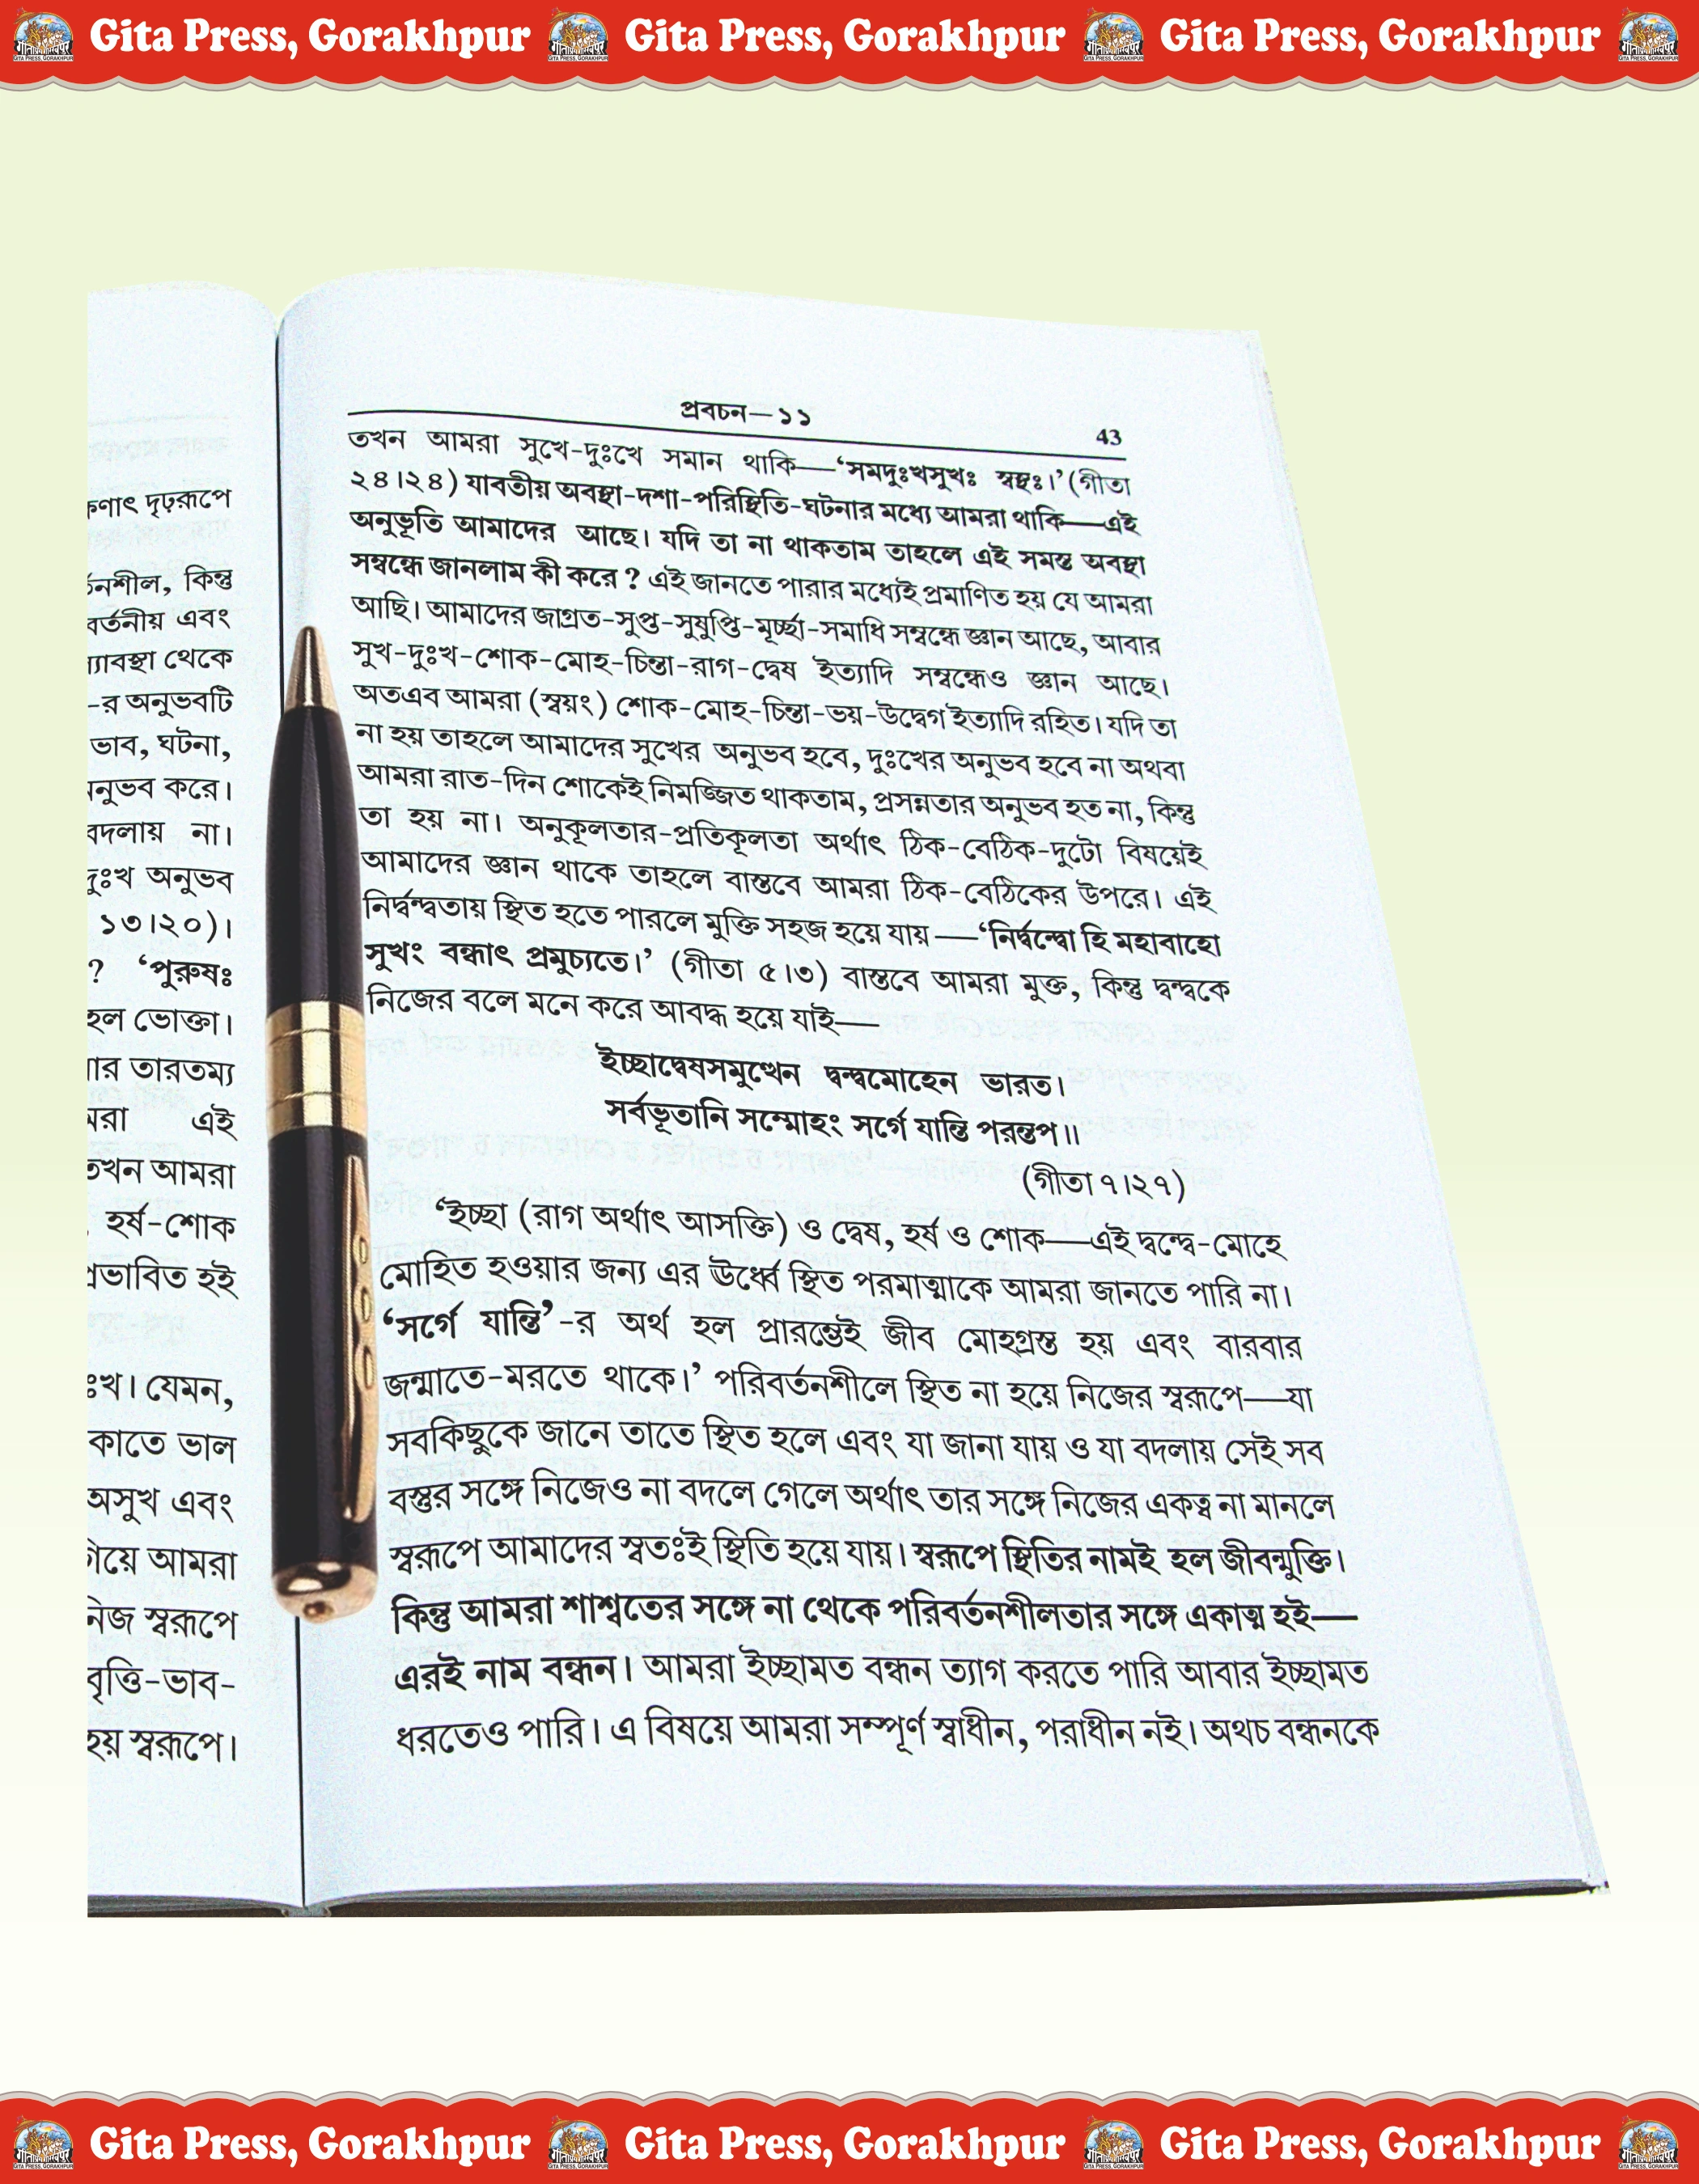 Gita Press, Gorakhpur Gita Press, Gorakhpur Gita Press, Gorakhpur
দৃঢ়রূপে
কিন্তু
এবং
থেকে
-র অনুভবটি
ভাব, ঘটনা,
করে।
বদলায় না।
দুঃখ অনুভব
১৩।২০)।
? ‘পুরুষঃ
হল ভোক্তা।
তারতম্য
এই
তখন আমরা
হর্ষ-শোক
প্রভাবিত হই
যেমন,
ভাল
অসুখ এবং
আমরা
নিজ স্বরূপে
বৃত্তি-ভাব-
হয় স্বরূপে।
প্রবচন—১১
43
তখন আমরা সুখে-দুঃখে সমান থাকি—‘সমদুঃখসুখঃ স্বস্থঃ।’ (গীতা
২৪।২৪) যাবতীয় অবস্থা-দশা-পরিস্থিতি-ঘটনার মধ্যে আমরা থাকি—এই
অনুভূতি আমাদের আছে। যদি তা না থাকতাম তাহলে এই সমস্ত অবস্থা
সম্বন্ধে জানলাম কী করে ? এই জানতে পারার মধ্যেই প্রমাণিত হয় যে আমরা
আছি। আমাদের জাগ্রত-সুপ্ত-সুষুপ্তি-মূর্চ্ছা-সমাধি সম্বন্ধে জ্ঞান আছে, আবার
সুখ-দুঃখ-শোক-মোহ-চিন্তা-রাগ-দ্বেষ ইত্যাদি সম্বন্ধেও জ্ঞান আছে।
অতএব আমরা (স্বয়ং) শোক-মোহ-চিন্তা-ভয়-উদ্বেগ ইত্যাদি রহিত। যদি তা
না হয় তাহলে আমাদের সুখের অনুভব হবে, দুঃখের অনুভব হবে না অথবা
আমরা রাত-দিন শোকেই নিমজ্জিত থাকতাম, প্রসন্নতার অনুভব হত না, কিন্তু
তা হয় না। অনুকূলতার-প্রতিকূলতা অর্থাৎ ঠিক-বেঠিক-দুটো বিষয়েই
আমাদের জ্ঞান থাকে তাহলে বাস্তবে আমরা ঠিক-বেঠিকের উপরে। এই
নির্দ্বন্দ্বতায় স্থিত হতে পারলে মুক্তি সহজ হয়ে যায়—‘নির্দ্বন্দ্বো হি মহাবাহো
সুখং বন্ধাৎ প্রমুচ্যতে।’ (গীতা ৫।৩) বাস্তবে আমরা মুক্ত, কিন্তু দ্বন্দ্বকে
নিজের বলে মনে করে আবদ্ধ হয়ে যাই—
ইচ্ছাদ্বেষসমুত্থেন দ্বন্দ্বমোহেন ভারত।
সর্বভূতানি সম্মোহং সর্গে যান্তি পরন্তপ॥
(গীতা ৭।২৭)
‘ইচ্ছা (রাগ অর্থাৎ আসক্তি) ও দ্বেষ, হর্ষ ও শোক—এই দ্বন্দ্বে-মোহে
মোহিত হওয়ার জন্য এর ঊর্ধ্বে স্থিত পরমাত্মাকে আমরা জানতে পারি না।
‘সর্গে যান্তি’-র অর্থ হল প্রারম্ভেই জীব মোহগ্রস্ত হয় এবং বারবার
জন্মাতে-মরতে থাকে।’ পরিবর্তনশীলে স্থিত না হয়ে নিজের স্বরূপে—যা
সবকিছুকে জানে তাতে স্থিত হলে এবং যা জানা যায় ও যা বদলায় সেই সব
বস্তুর সঙ্গে নিজেও না বদলে গেলে অর্থাৎ তার সঙ্গে নিজের একত্ব না মানলে
স্বরূপে আমাদের স্বতঃই স্থিতি হয়ে যায়। স্বরূপে স্থিতির নামই হল জীবন্মুক্তি।
কিন্তু আমরা শাশ্বতের সঙ্গে না থেকে পরিবর্তনশীলতার সঙ্গে একাত্ম হই—
এরই নাম বন্ধন। আমরা ইচ্ছামত বন্ধন ত্যাগ করতে পারি আবার ইচ্ছামত
ধরতেও পারি। এ বিষয়ে আমরা সম্পূর্ণ স্বাধীন, পরাধীন নই। অথচ বন্ধনকে
Gita Press, Gorakhpur Gita Press, Gorakhpur Gita Press, Gorakhpur